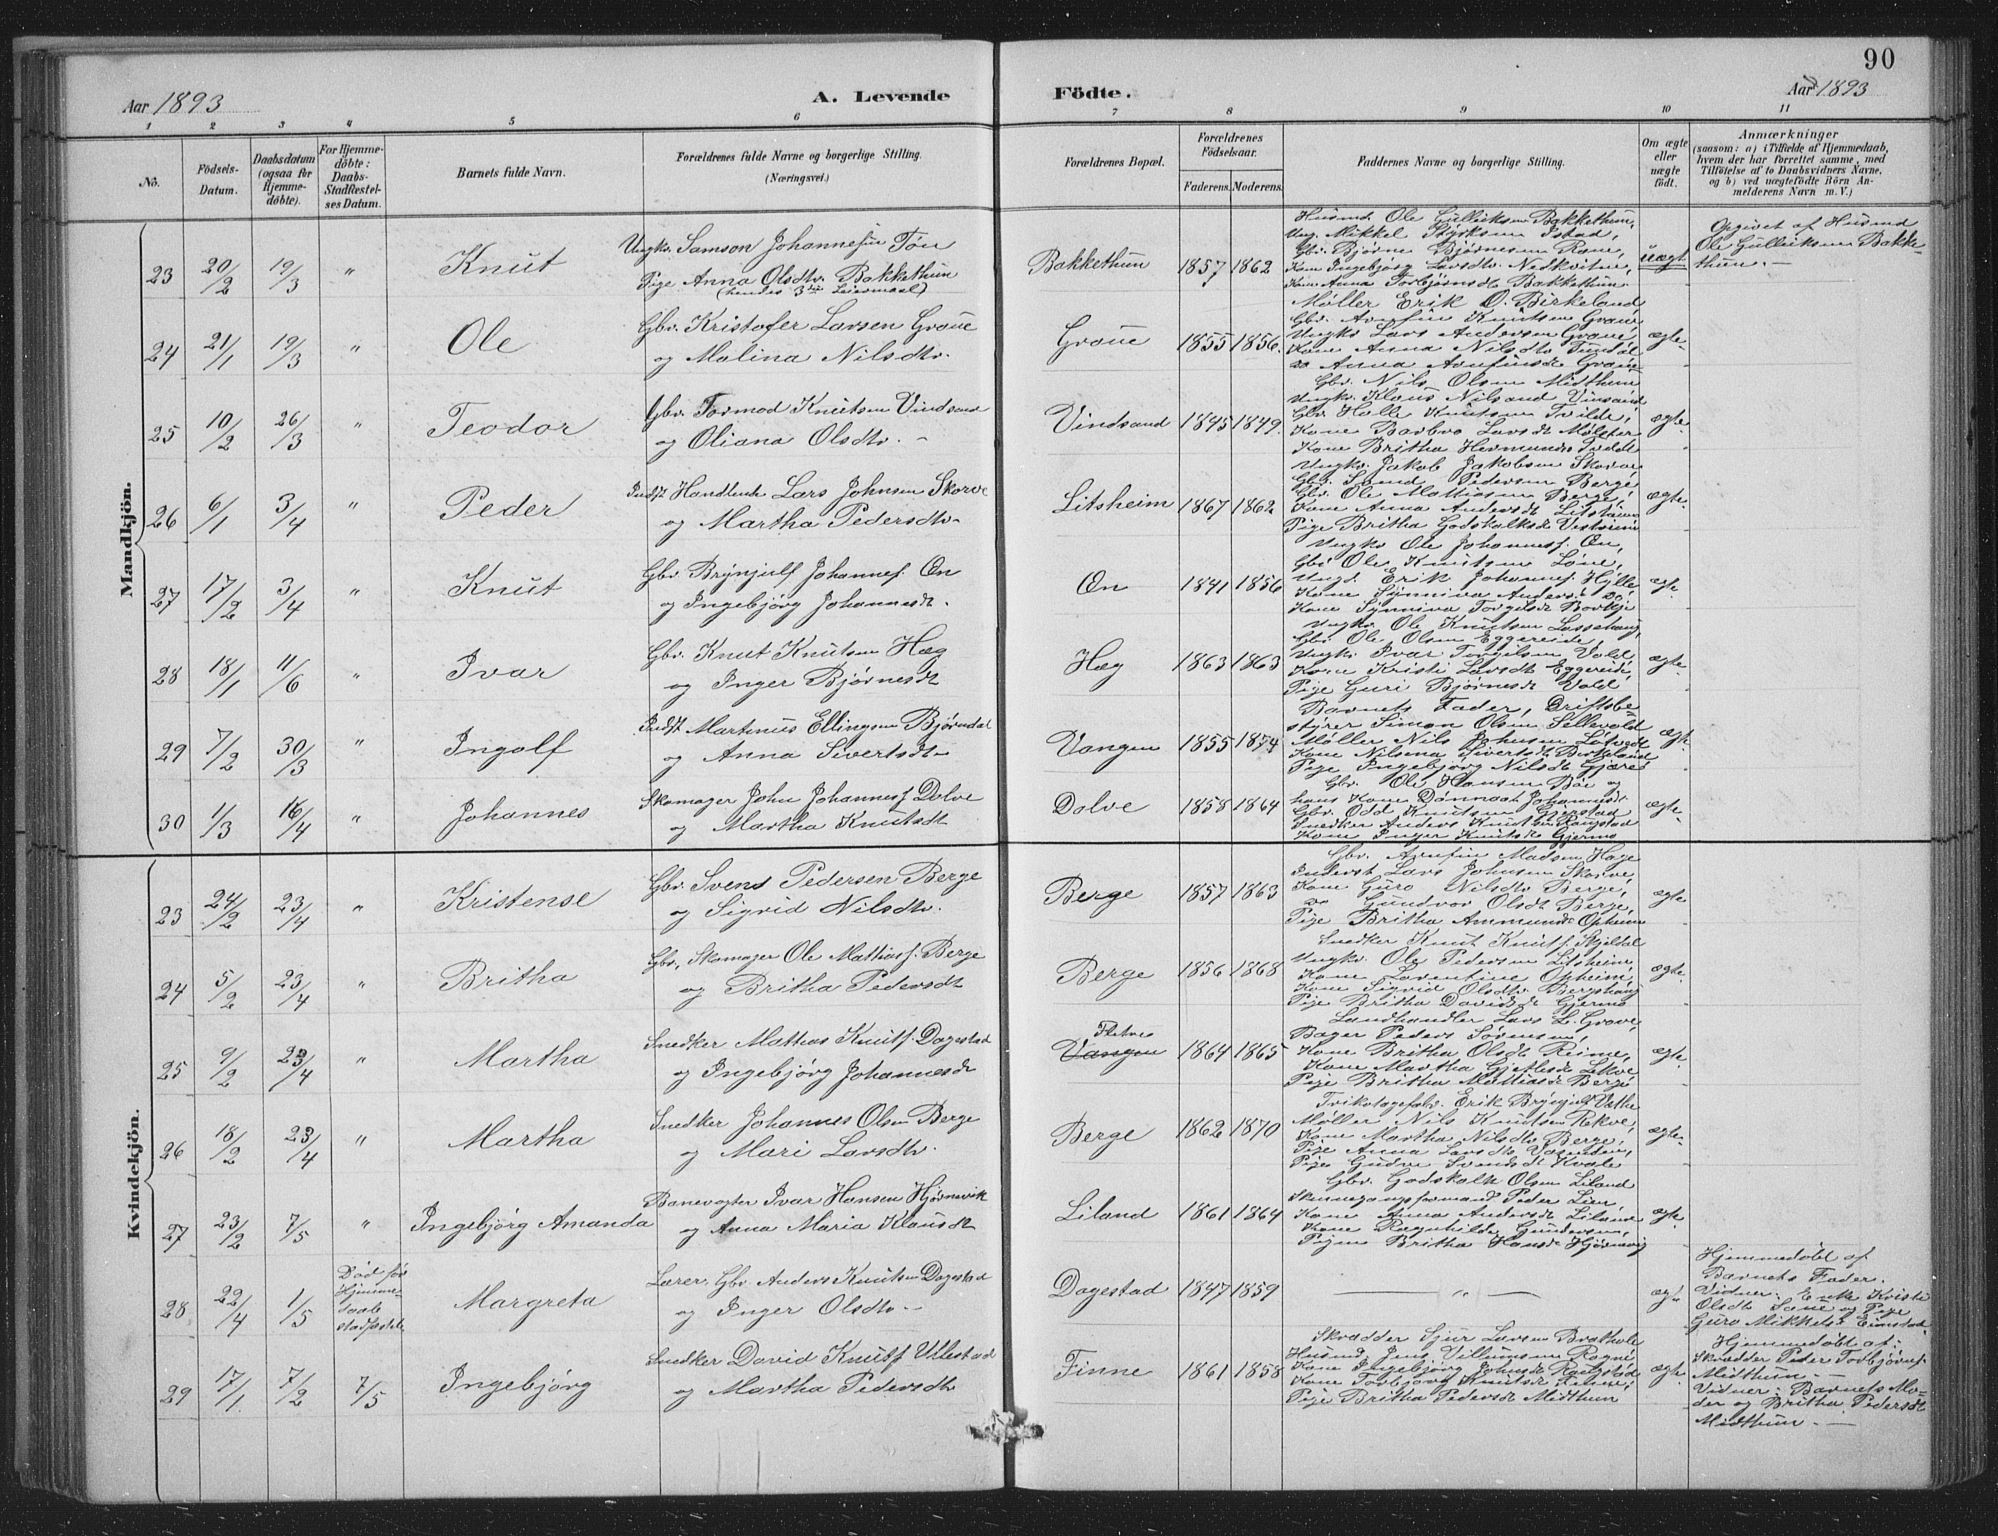 90
Aar 1893
A. Levende Födte.
Aar 1893
1 2 3 4 5 6 7 8 9 10 11
No.
Födsels-Datum.
Daabsdatum (ogsaa for Hjemmedöbte).
For Hjemmedöbte: Daabs-Stadfæstelses Datum.
Barnets fulde Navn.
Forældrenes fulde Navne og borgerlige Stilling.
(Næringsvei.)
Forældrenes Bopæl.
Forældrenes Födselsaar.
Faderens. Moderens.
Faddernes Navne og borgerlige Stilling.
Om ægte eller uægte födt.
Anmærkninger
(saasom: a) i Tilfælde af Hjemmedaab, hvem der har forrettet samme, med Tilföielse af to Daabsvidners Navne, og b) ved uægtefödte Börn Anmelderens Navn m. V.)
Mandkjön.
23 20/2 19/3 " Knut
Ungkr. Samson Johannesen Tön
Pige Anna Olsdtr. Bakkethun
(hendes 3die Leiermaal)
Bakkethun 1857 1862
Husmd. Ole Gulliksen Bakkethun,
Ung. Mikkel Styrksen Istad,
Gbr. Bjørne Bjørnesen Rene,
Kone Ingebjørg Larsdtr. Nedkvitne,
Kone Anna Torbjørnsdt Bakkethun
uægt
Opgivet af Husmd
Ole Gulliksen Bakke-
thun.—
24 21/1 19/3 " Ole
Gbr. Kristofer Larsen Grove
og Malina Nilsdtr.
Grove 1855 1856.
Møller Erik O. Birkeland
Gbr. Arnfin Knutsen Grove
Ungkr. Lars Andersen Grove,
Kone Anna Nilsdtr
do Anna Arnfinsdt Grove
ægte
25 10/2 26/3 " Teodor
Gbr. Tormod Knutsen Vindsand
og Oliana Olsdtr. -
Vindsand 1845 1849.
Gbr. Nils Olsen Midthun
Ungkr. Klaus Nilsand Vinsand
Gbr. Halle Knutsen Tvilde,
Kone Barbro Larsdt Mølster
Kone Britha Hermunds
ægte
26 6/1 3/4 " Peder
Indst Handlende Lars Johnsen Skorve
og Martha Pedersdtr
Litsheim 1867 1862
Ungkr. Jakob Jakobsen Skorve
Gbr. Svend Pedersen Berge
Gbr. Ole Mathiasen Berge,
Kone Anna Andersdt Litsheim
Pige Britha Godskalksdt
ægte
27 17/2 3/4 " Knut
Gbr. Brynjulf Johannes. Øn
og Ingebjørg Johannesdt.
Øn 1841 1856
Ungkr Ole Johannesf. Øn,
Gbr Ole Knutsen Løne,
Ungk. Erik Johannesf. Hylle
Kone Synniva Andersdt do,
Kone Synniva Torgelsdt
ægt.
28 18/1 11/6 " Ivar
Gbr. Knut Knutsen Hæg
og Inger Bjørnesdt
Hæg 1863 1863
Ungkr. Ole Knutsen
Gbr Ole Olsen Eggereide,
Ungkr Ivar Torgilsen Vold
Kone Kristi Larsdt Eggereide,
Pige Guri Bjørnesdt Vold
ægte
29 7/2 30/3 " Ingolf
Indst Martinus Ellingsen Bjørndal
og Anna Sivertsdt
Vangen 1855 1874
Barnets Fader, Driftsbe-
styrer Simon Olsen Sellevold
Møller Nils Johnsen
Kone Nilsena Sivertsdt Birkeland
Pige Ingebjørg Nilsdt Gjære
ægt.
30 1/3 16/4 " Johannes
Skomager John Johannesf Dolve
og Martha Knutsdt
Dolve 1858 1864
Gbr. Ole Hansen Bøe og
hans Kone Johannesdt.
Gbr. Odd Knutsen Gjerstad
Snedker Anders Knutsen
Kone Inger Knutsdt Gjerme
ægte
Kvindekjön.
23 24/2 23/4 " Kristense
Gbr Svend Pedersen Berge
og Sigrid Nilsdtr.
Berge 1857 1863
Gbr. Arnfin Madsen Hæge
Inderst Lars Johnsen Skorve,
Kone Guro Nilsdtr Berge,
do Gundvor Olsdt Berge,
Pige Britha Ammundsdt Opheim
ægte
24 5/2 23/4 " Britha
Gbr, Skomager Ole Mathiasf. Berge
og Britha Pedersdt
Berge 1856 1868
Snedker Knut Knutsf. Skjeldal
Ungkr. Ole Pedersen Litsheim,
Kone Laventine Opheim,
Kone Sigrid Olsdtr.
Pige Britha Davidsdt Gjerme
ægte
25 9/2 23/4 " Martha
Snedker Mathias Knutf Dagestad
og Ingebjørg Johannesdt
Vangen 1864 1865
Landhandler Lars L. Grove,
Bager Peders Sørensen,
Kone Britha Olsdt Reime,
Kone Martha Gjetlesdt Lekve
Pige Britha Mathiasdt Berge
ægte
26 18/2 23/4 " Martha
Snedker Johannes Olsen Berge
og Mari Larsdtr.
Berge 1862 1870
Trikotagefabr. Erik Brynjulfs
Møller Nils Knutsen Rekve,
Kone Martha Nilsdtr Berge,
Pige Anna Larsdt
Pige Gudve Svendsdt Kvale
ægte
27 23/2 7/5 " Ingebjørg Amanda
Banevogter Ivar Hansen Hjørnevik
og Anna Maria Klausdt
Liland 1861 1864
Gbr. Godskalk Olsen Liland
Skinnegangsformand Peder Lien
Kone Anna Andersdt Liland
Kone Ragnhilda Gundersen,
Pigen Britha Hansdt Hjørnevig
ægt.
28 22/4 1/5
Død før
Hjemme-
daab
stadfæstede
Margreta
Lærer. Gbr Anders Knutsen Dagestad
og Inger Olsdtr.
Dagestad 1847 1859
— " —
ægt.
Hjemmedøbt af
Barnets Fader.
Vidner: Enke Kristi
Olsdt Sane og Pige
Guro Mikkelsdt
29 17/1 7/2 7/5 Ingebjørg
Snedker David Knutf Ullestad
og Martha Pedersdtr
Finne 1861 1858
Skrædder Sjur Larsen Brathole
Husmd. Jens Villumsen Rogne
Kone Ingebjørg Johnsdt
Kone Torbjørg Knutsdt
Pige Britha Pedersdt Midthun
ægt.
Hjemmedøbt af:
Skrædder Peder Torbjørnsf.
Midthun.—
Vidner: Barnets Mo-
der og Britha Pedersdt
Midthun.—